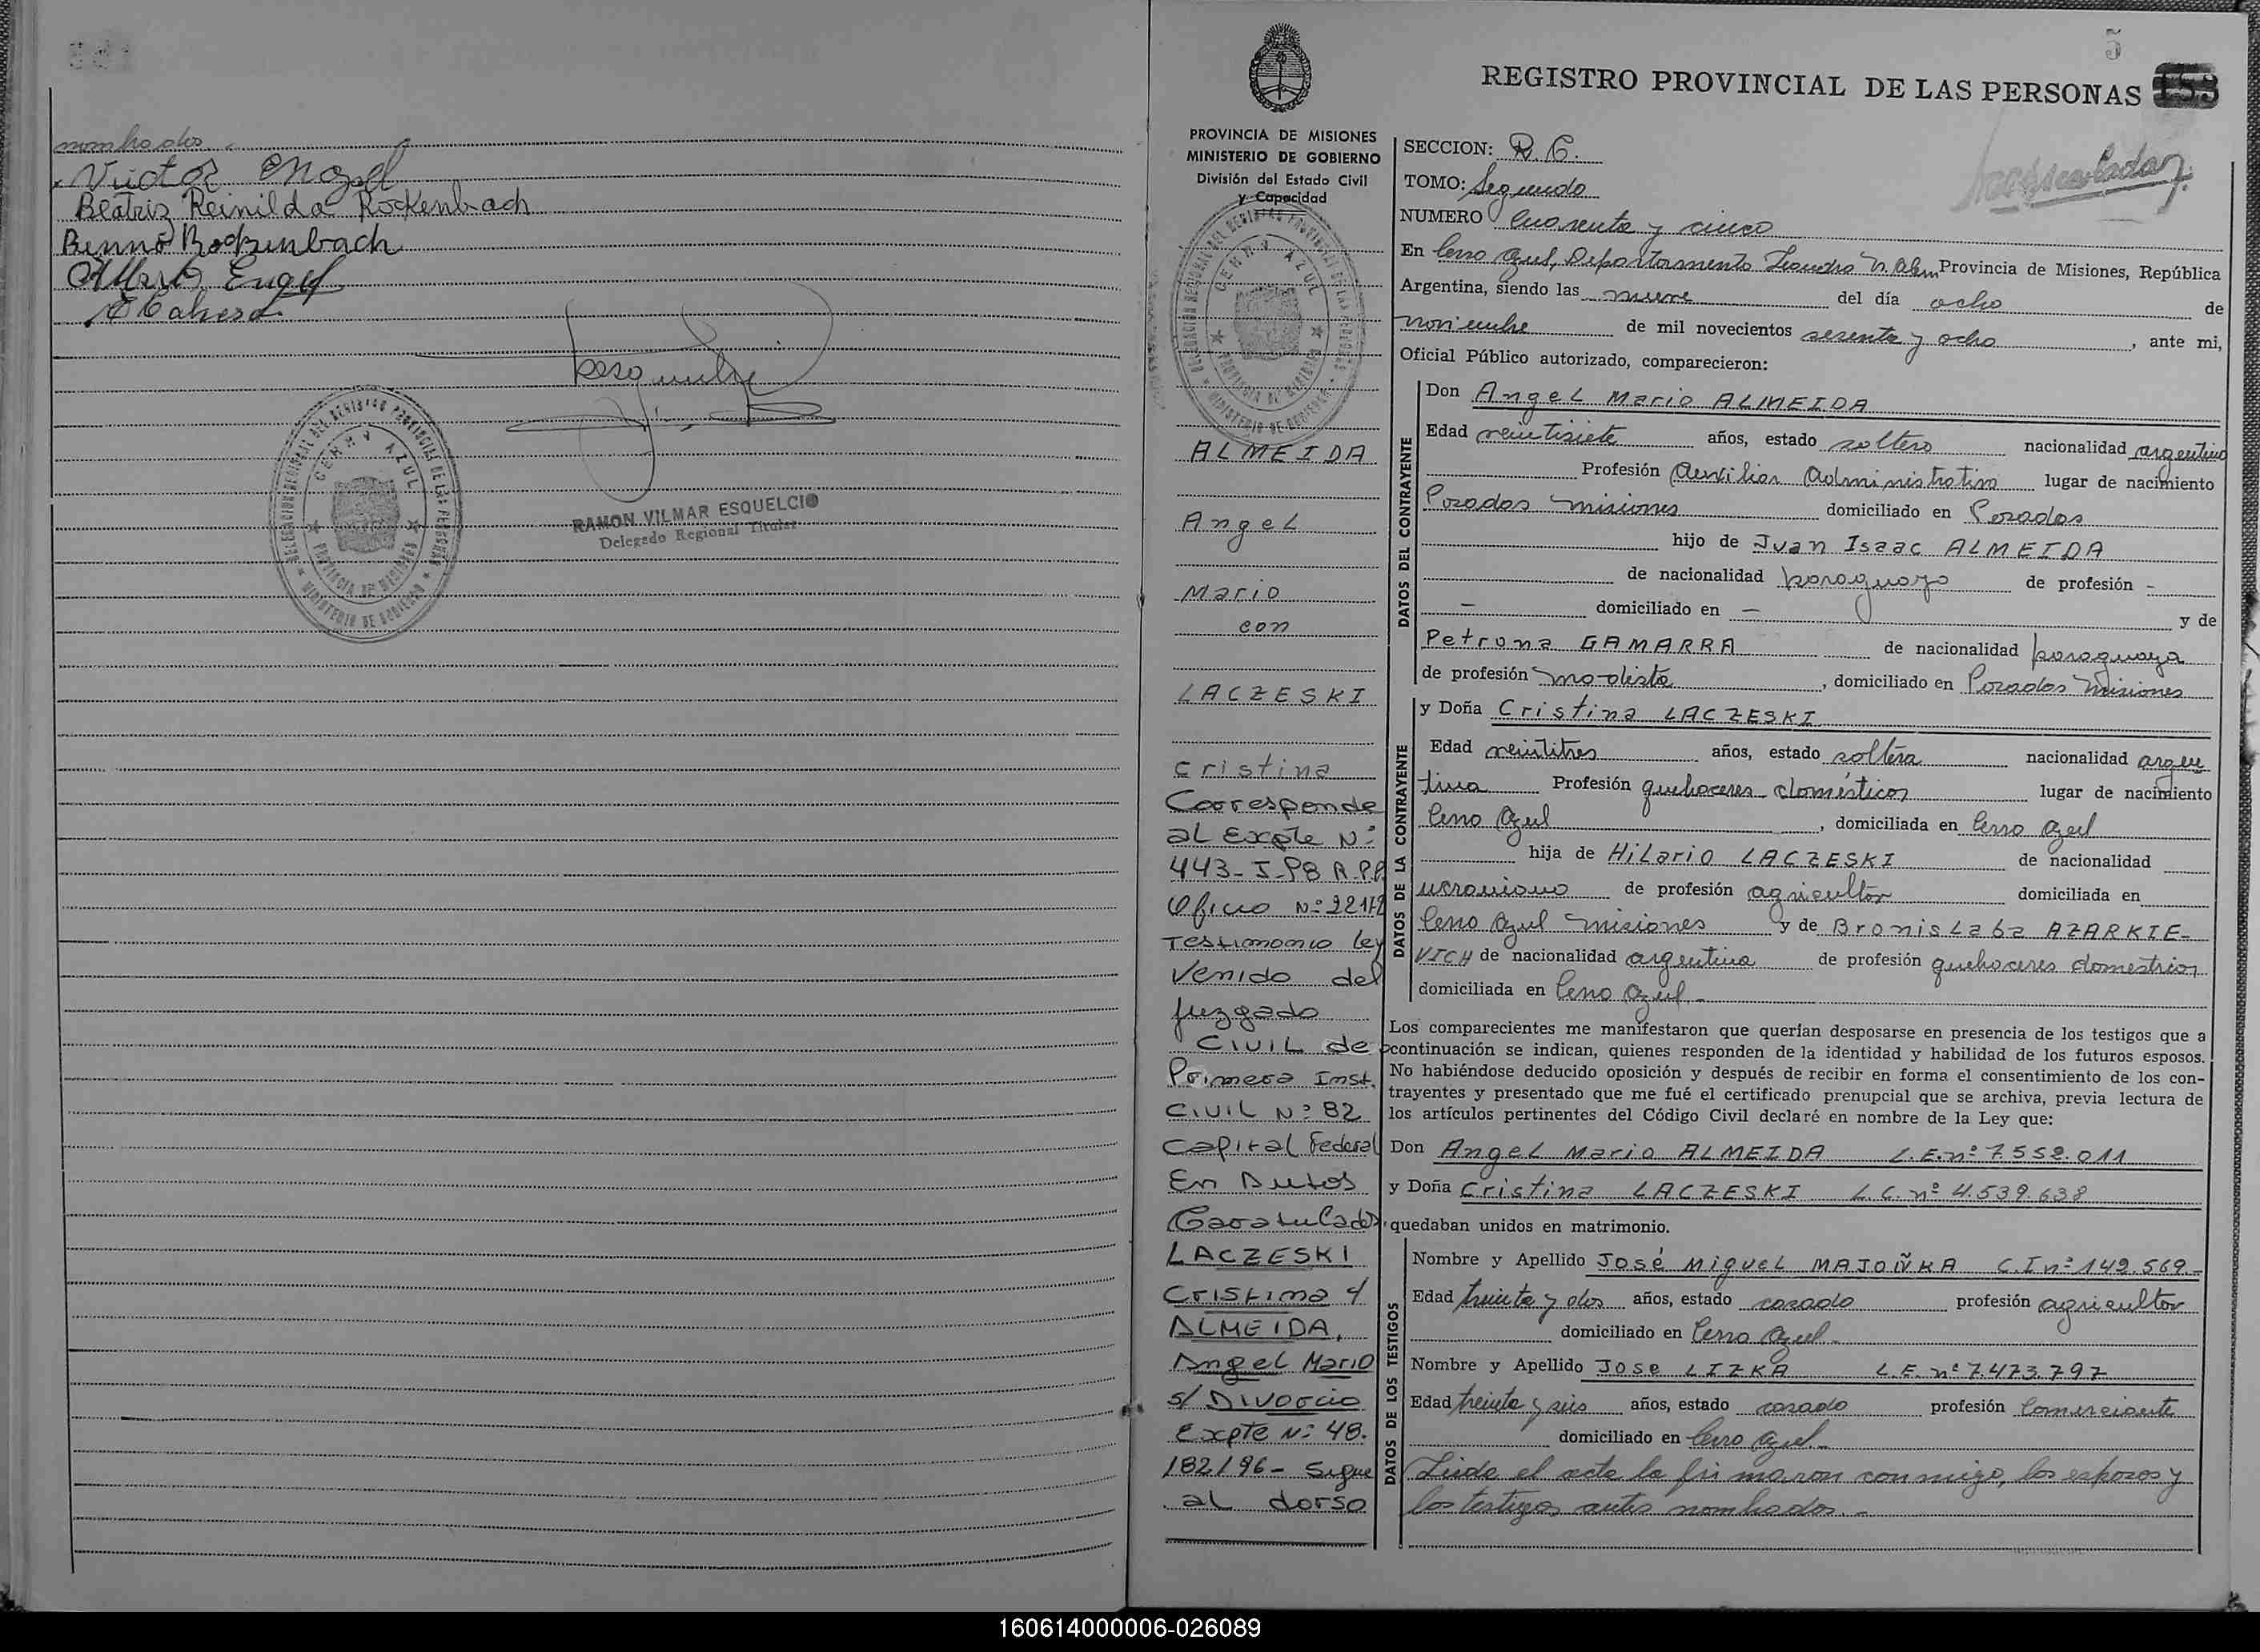 nombrados.
Victor Engel
Beatriz Reinilda Rockenbach
Benno Rockenbach
Alberto Engel
RAMON VILMAR ESQUELCIO
Delegado Regional Titular
CERRO AZUL
5
REGISTRO PROVINCIAL DE LAS PERSONAS 153
PROVINCIA DE MISIONES
MINISTERIO DE GOBIERNO
División del Estado Civil
y Capacidad
CERRO AZUL
ALMEIDA
Angel
Mario
con
LACZESKI
Cristina
Corresponde
al Expte Nº
443-J-98 R.P.P
Oficio Nº
Testimonio Ley
Venido del
Juzgado
CIVIL de
Primera Inst.
CIVIL Nº 82
Capital Federal
En Autos
Caratulados
LACZESKI
Cristina c/
ALMEIDA,
Angel Mario
s/ Divorcio
Expte Nº 48.
182/96- Sigue
al dorso
SECCION: R. C.
TOMO: Segundo
NUMERO Cuarenta y cinco
En Cerro Azul, Departamento Leandro N. Alem Provincia de Misiones, República
Argentina, siendo las nueve del día ocho de
noviembre de mil novecientos sesenta y ocho, ante mi,
Oficial Público autorizado, comparecieron:
DATOS DEL CONTRAYENTE
Don Angel Mario ALMEIDA
Edad veintisiete años, estado soltero nacionalidad argentino
Profesión Auxiliar Administrativo lugar de nacimiento
Posadas Misiones domiciliado en Posadas
hijo de Juan Isaac ALMEIDA
de nacionalidad paraguayo de profesión -
- domiciliado en - y de
Petrona GAMARRA de nacionalidad paraguaya
de profesión modista, domiciliado en Posadas Misiones
DATOS DE LA CONTRAYENTE
y Doña Cristina LACZESKI
Edad veintitres años, estado soltera nacionalidad argen
tina Profesión quehaceres domésticos lugar de nacimiento
Cerro Azul, domiciliada en Cerro Azul
hija de Hilario LACZESKI de nacionalidad
ucraniano de profesión agricultor domiciliada en
Cerro Azul Misiones y de Bronislaba AZARKIE-
VICH de nacionalidad argentina de profesión quehaceres domestricos
domiciliada en Cerro Azul.-
Los comparecientes me manifestaron que querían desposarse en presencia de los testigos que a
continuación se indican, quienes responden de la identidad y habilidad de los futuros esposos.
No habiéndose deducido oposición y después de recibir en forma el consentimiento de los con-
trayentes y presentado que me fué el certificado prenupcial que se archiva, previa lectura de
los artículos pertinentes del Código Civil declaré en nombre de la Ley que:
Don Angel Mario ALMEIDA L.E.nº 7.552.011
y Doña Cristina LACZESKI L.C.nº 4.539.638
quedaban unidos en matrimonio.
DATOS DE LOS TESTIGOS
Nombre y Apellido José Miguel MAJOÑKA C.I nº 149.569.-
Edad treinta y dos años, estado casado profesión agricultor
domiciliado en Cerro Azul.-
Nombre y Apellido Jose LIZKA L.E. nº 7.473.797
Edad treinta y seis años, estado casado profesión Comerciante
domiciliado en Cerro Azul.-
Leida el acta la firmaron conmigo, los esposos y
los testigos antes nombrados.-
160614000006-026089